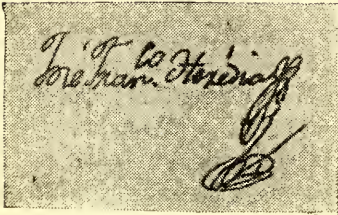 José Fran.co Heredia